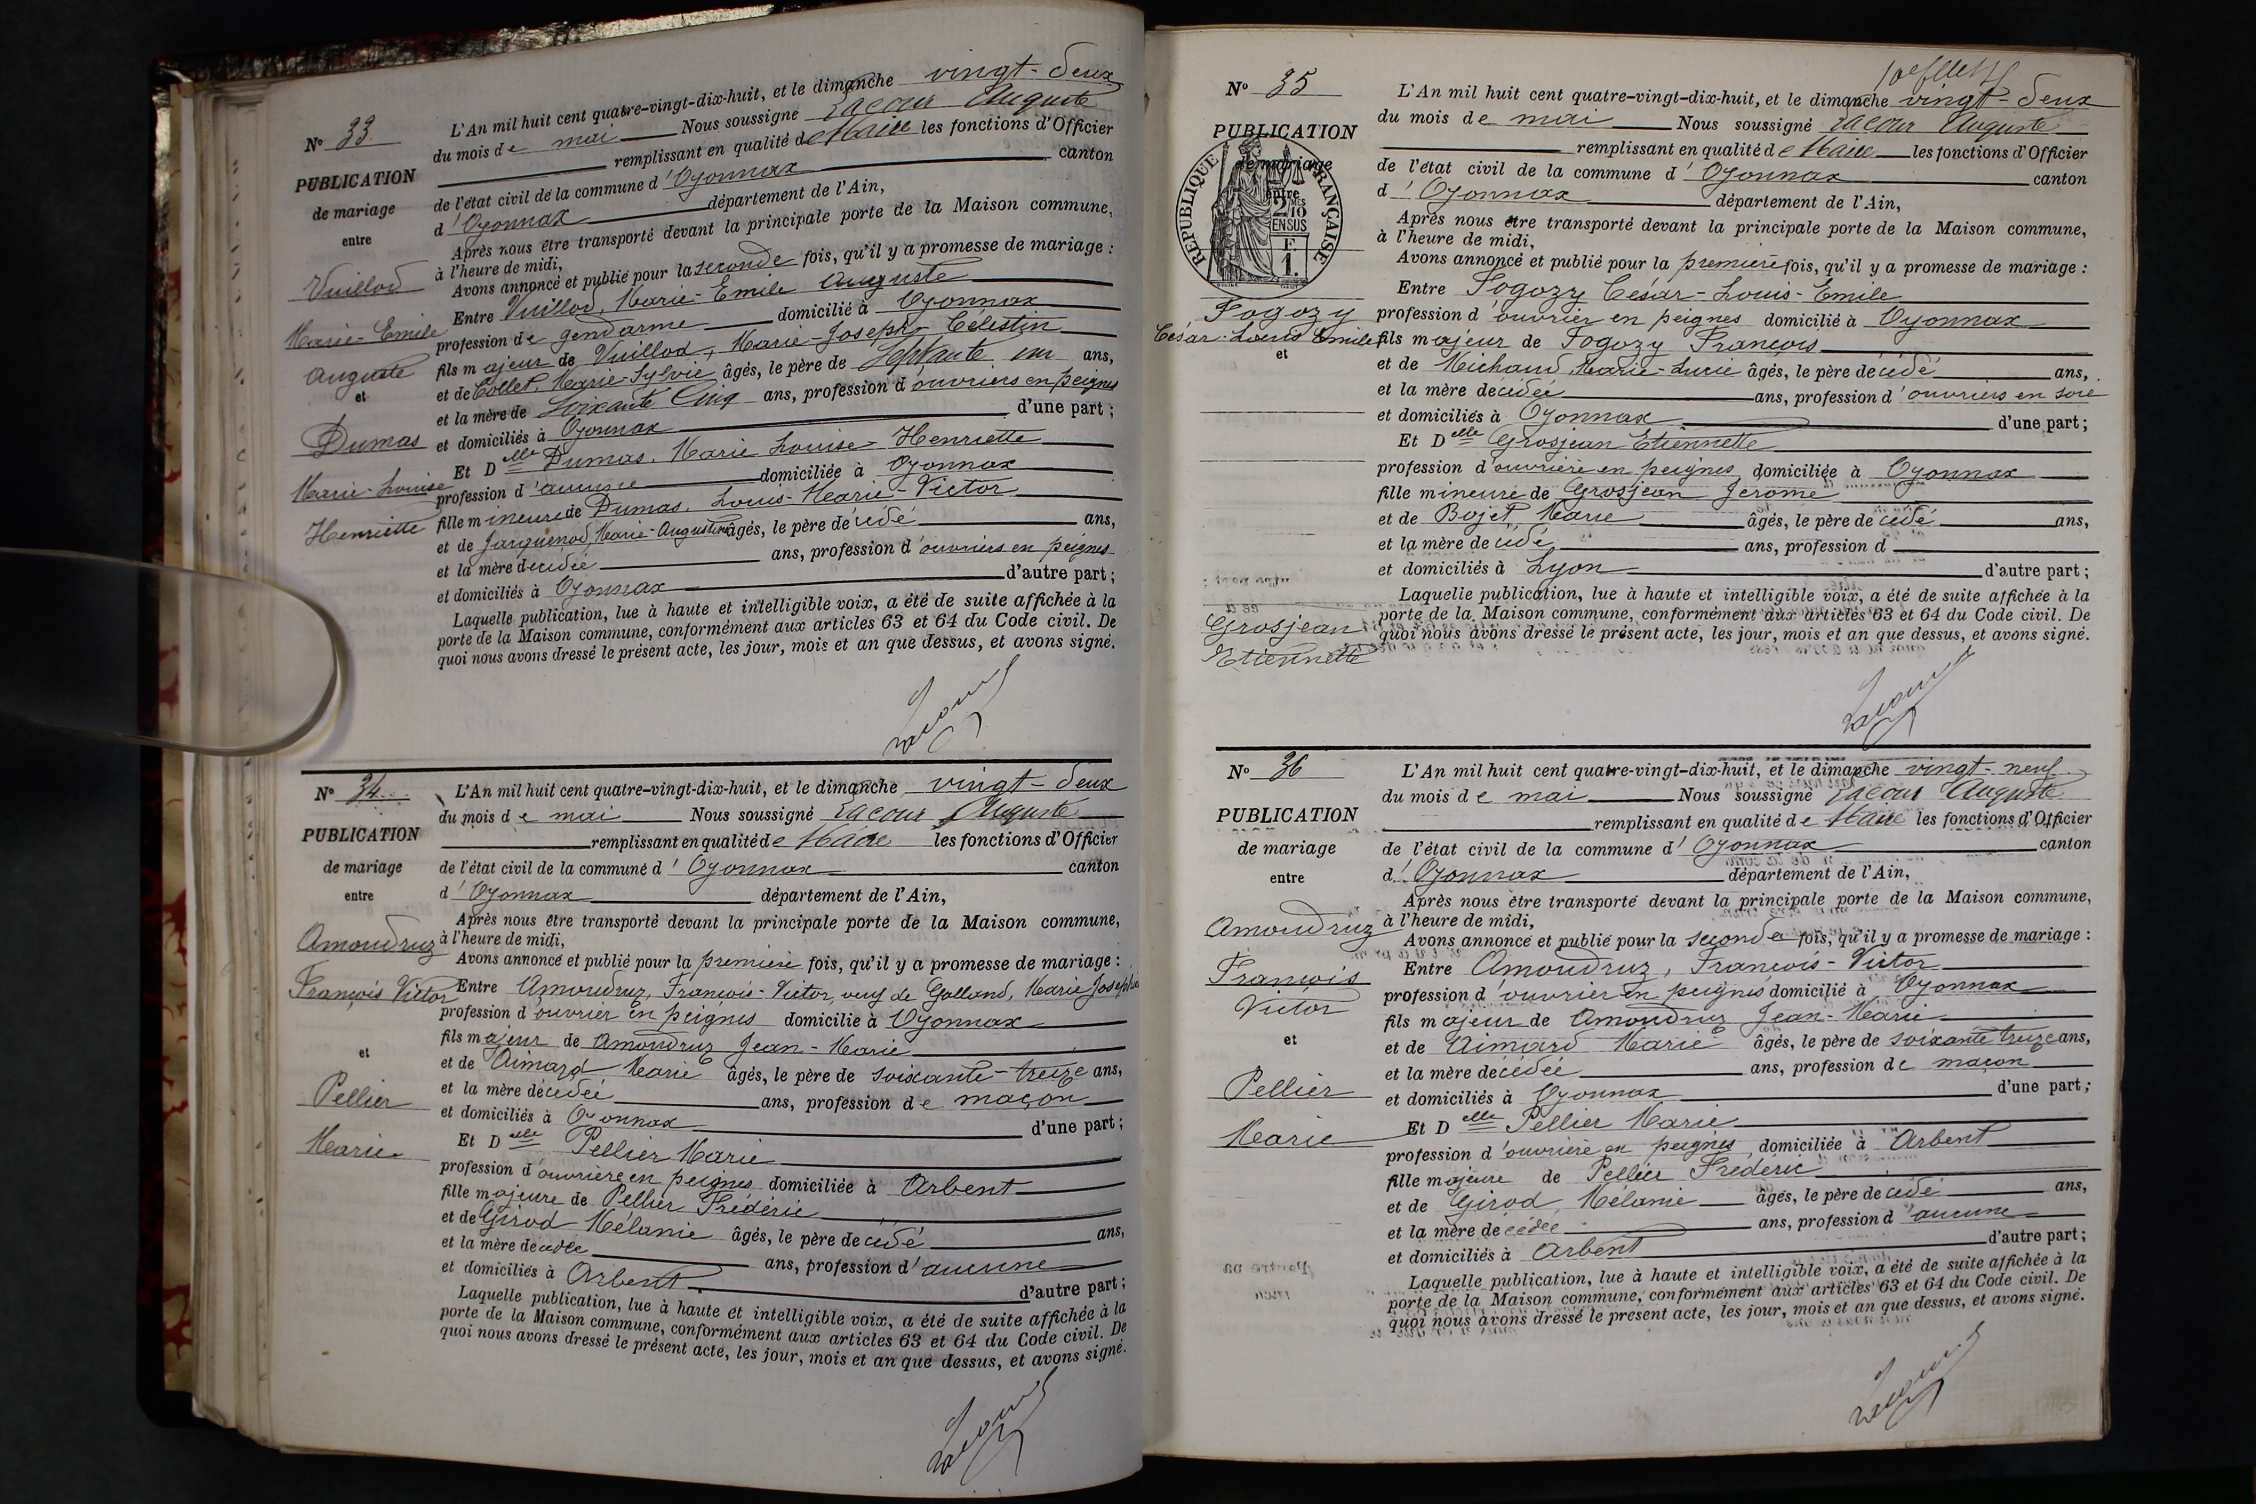 N° 33.
PUBLICATION
de mariage
entre
Vuillod
Marie-Emile
Auguste
et
Dumas
Marie-Louise
Henriette
L'An mil huit cent quatre-vingt-dix-huit, et le dimanche vingt-deux
du mois de mai Nous soussigné Lacour Auguste
remplissant en qualité de Maire les fonctions d'Officier
de l'état civil de la commune d'Oyonnax canton
d'Oyonnax département de l'Ain,
Après nous être transporté devant la principale porte de la Maison commune,
à l'heure de midi,
Avons annoncé et publié pour la seconde fois, qu'il y a promesse de mariage :
Entre Vuillod, Marie-Emile Auguste
profession de gendarme domicilié à Oyonnax
fils majeur de Vuillod, Marie-Joseph Célestin
et de Collet, Marie-Sylvie âgés, le père de Septante un ans,
et la mère de Soixante Cinq ans, profession d'ouvriers en peignes
et domiciliés à Oyonnax d'une part ;
Et Delle Dumas, Marie Louise-Henriette
profession d'aucune domiciliée à Oyonnax
fille mineure de Dumas, Louis-Marie-Victor
et de Jarguenod, Marie-Augustine âgés, le père décédé ans,
et la mère décédée ans, profession d'ouvriers en peignes
et domiciliés à Oyonnax d'autre part ;
Laquelle publication, lue à haute et intelligible voix, a été de suite affichée à la
porte de la Maison commune, conformément aux articles 63 et 64 du Code civil. De
quoi nous avons dressé le présent acte, les jour, mois et an que dessus, et avons signé.
Lacour
N° 34.
PUBLICATION
de mariage
entre
Amoudruz
François Victor
et
Pellier
Marie
L'An mil huit cent quatre-vingt-dix-huit, et le dimanche vingt-deux
du mois de mai Nous soussigné Lacour Auguste
remplissant en qualité de Maire les fonctions d'Officier
de l'état civil de la commune d'Oyonnax canton
d'Oyonnax département de l'Ain,
Après nous être transporté devant la principale porte de la Maison commune,
à l'heure de midi,
Avons annoncé et publié pour la première fois, qu'il y a promesse de mariage :
Entre Amoudruz, François-Victor, veuf de Golland, Marie Josephte
profession d'ouvrier en peignes domicilié à Oyonnax
fils majeur de Amoudruz Jean-Marie
et de Aimard Marie âgés, le père de soixante-treize ans,
et la mère décédée ans, profession de maçon
et domiciliés à Oyonnax d'une part ;
Et Delle Pellier Marie
profession d'ouvrière en peignes domiciliée à Arbent
fille majeure de Pellier Frédéric
et de Girod Mélanie âgés, le père décédé ans,
et la mère decedée ans, profession d'aucune
et domiciliés à Arbent d'autre part ;
Laquelle publication, lue à haute et intelligible voix, a été de suite affichée à la
porte de la Maison commune, conformément aux articles 63 et 64 du Code civil. De
quoi nous avons dressé le présent acte, les jour, mois et an que dessus, et avons signé.
Lacour
N° 35
PUBLICATION
de mariage
entre
REPUBLIQUE FRANÇAISE
2/10
EN SUS
F.
1.
Fogozy
César-Louis Emile
et
Grosjean
Etiennette
L'An mil huit cent quatre-vingt-dix-huit, et le dimanche vingt-deux
du mois de mai Nous soussigné Lacour Auguste
remplissant en qualité de Maire les fonctions d'Officier
de l'état civil de la commune d'Oyonnax canton
d'Oyonnax département de l'Ain,
Après nous être transporté devant la principale porte de la Maison commune,
à l'heure de midi,
Avons annoncé et publié pour la première fois, qu'il y a promesse de mariage :
Entre Fogozy César-Louis-Emile
profession d'ouvrier en peignes domicilié à Oyonnax
fils majeur de Fogozy François
et de Michaud, Marie-Lucie âgés, le père décédé ans,
et la mère décédée ans, profession d'ouvriers en soie
et domiciliés à Oyonnax d'une part ;
Et Delle Grosjean Etiennette
profession d'ouvrière en peignes domiciliée à Oyonnax
fille mineure de Grosjean Jérome
et de Bojet Marie âgés, le père décédé ans,
et la mère décédé ans, profession d
et domiciliés à Lyon d'autre part ;
Laquelle publication, lue à haute et intelligible voix, a été de suite affichée à la
porte de la Maison commune, conformément aux articles 63 et 64 du Code civil. De
quoi nous avons dressé le présent acte, les jour, mois et an que dessus, et avons signé.
Lacour
N° 36
PUBLICATION
de mariage
entre
Amoudruz
François
Victor
et
Pellier
Marie
L'An mil huit cent quatre-vingt-dix-huit, et le dimanche vingt-neuf
du mois de mai Nous soussigné Lacour Auguste
remplissant en qualité de Maire les fonctions d'Officier
de l'état civil de la commune d'Oyonnax canton
d'Oyonnax département de l'Ain,
Après nous être transporté devant la principale porte de la Maison commune,
à l'heure de midi,
Avons annoncé et publié pour la seconde fois, qu'il y a promesse de mariage :
Entre Amoudruz, François-Victor
profession d'ouvrier en peignes domicilié à Oyonnax
fils majeur de Amoudruz Jean-Marie
et de Aimard Marie âgés, le père de soixante treize ans,
et la mère décédée ans, profession de maçon
et domiciliés à Oyonnax d'une part ;
Et Delle Pellier Marie
profession d'ouvrière en peignes domiciliée à Arbent
fille majeure de Pellier Frédéric
et de Girod, Mélanie âgés, le père décédé ans,
et la mère décédée ans, profession d'aucune
et domiciliés à Arbent d'autre part ;
Laquelle publication, lue à haute et intelligible voix, a été de suite affichée à la
porte de la Maison commune, conformément aux articles 63 et 64 du Code civil. De
quoi nous avons dressé le present acte, les jour, mois et an que dessus, et avons signé.
Lacour